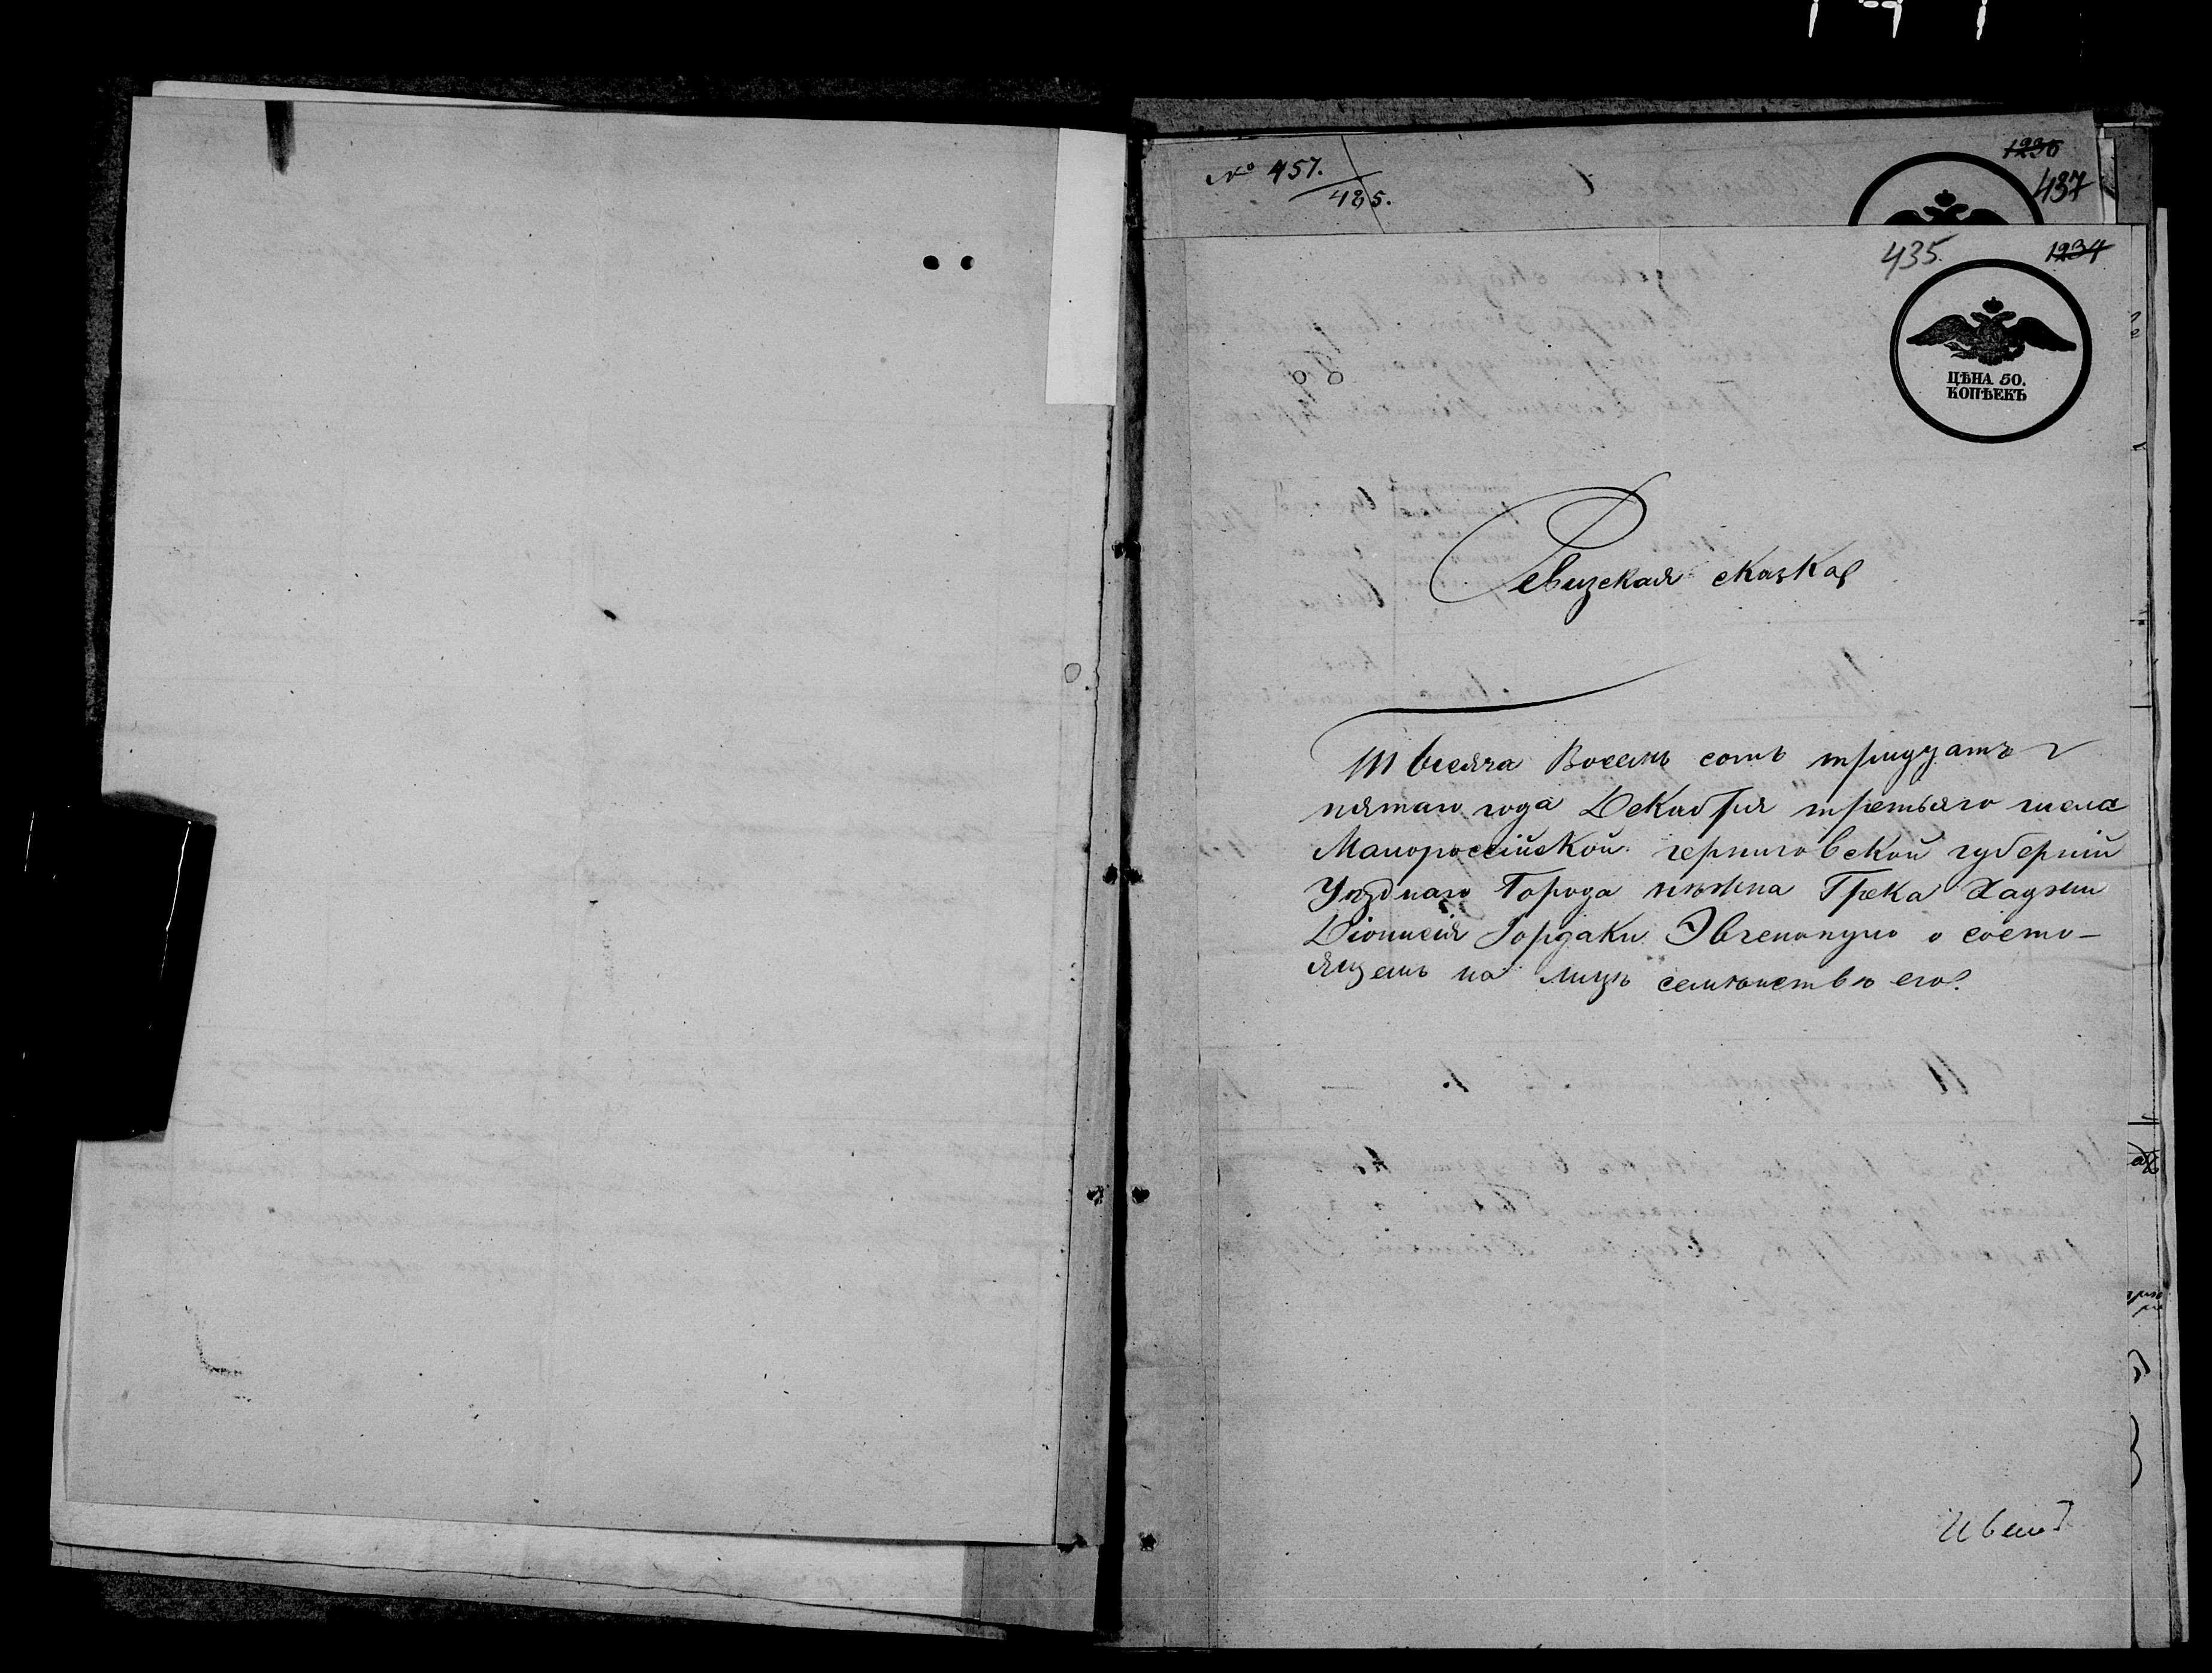 № 457.
485.
1236
437
435.
1234
ЦѢНА 50.
КОПѢЕКЪ
Ревизская сказка
Тысяча Восемь сотъ тридцать
пятаго года Декабря третьяго числа
Малоросsійской черниговской губерніи
Уѣзднаго Города нѣжина Грека Хаджи
Діонисія Іордаки Эвченопуло о состо-
ящемъ на лицѣ семѣйствѣ его.